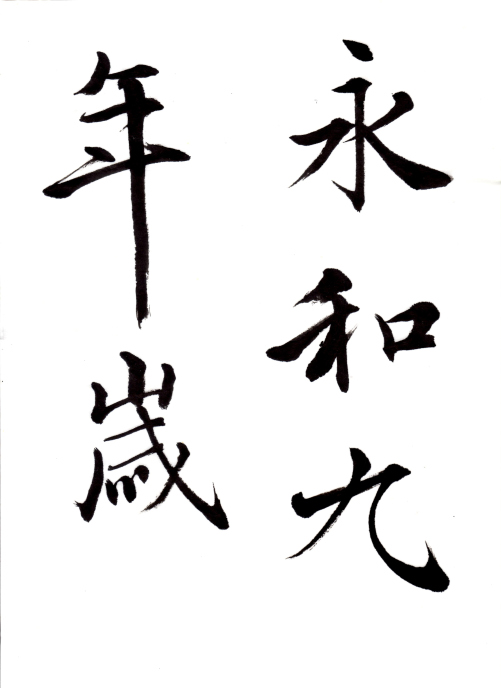 永和九
年歳